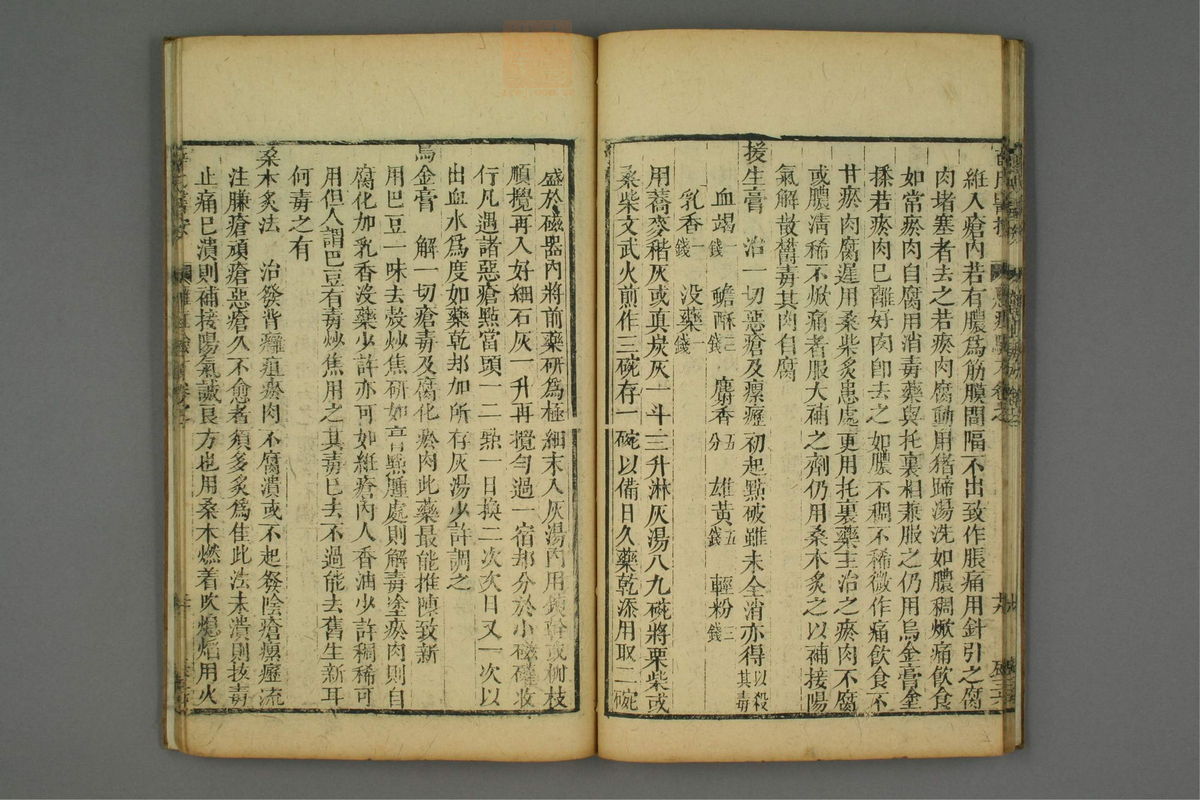 維入瘡內若有膿爲筋膜間隔不出致作脹痛用針引之腐
肉堵塞者去之若瘀肉腐動用猪蹄湯洗如膿稠焮痛飲食
如常瘀肉自腐用消毒藥與托裏相兼服之仍用烏金膏塗
揉若瘀肉已離好肉卽去之如膿不稠不稀微作痛飲食不
甘瘀肉腐遲用桑柴炙患處更用托裏藥主治之瘀肉不腐
或膿淸稀不焮痛者服大補之劑仍用桑木炙之以補接陽
氣解散鬱毒其肉自腐
援生膏 治一切惡瘡及瘰癧初起點破雖未全消亦得以殺其毒
血竭一錢 蟾酥三錢 麝香五分 雄黃五錢 輕粉三錢
乳香一錢 没藥一錢
用蕎麥稭灰或眞炭灰一斗三升淋灰湯八九碗將栗柴或
桑柴文武火煎作三碗存一碗以備日久藥乾添用取二碗
盛於磁器內將前藥硏爲極細末入灰湯內用鐵幹或柳枝
順攪再入好細石灰一升再攪勻過一宿却分於小磁礶收
行凡遇諸惡瘡點當頭一二點一日換二次次日又一次以
出血水爲度如藥乾却加所存灰湯少許調之
烏金膏 解一切瘡毒及腐化瘀肉此藥最能推陳致新
用巴豆一味去殼炒焦硏如膏點腫處則解毒塗瘀肉則自
腐化加乳香没藥少許亦可如維瘡內入香油少許稠稀可
用但人謂巴豆有毒炒焦用之其毒已去不過能去舊生新耳
何毒之有
桑木炙法 治發背癰疽瘀肉不腐潰或不起發陰瘡瘰癧流
注臁瘡頑瘡惡瘡久不愈者須多炙爲佳此法未潰則拔毒
止痛已潰則補接陽氣誠良方也用桑木燃着吹熄焰用火